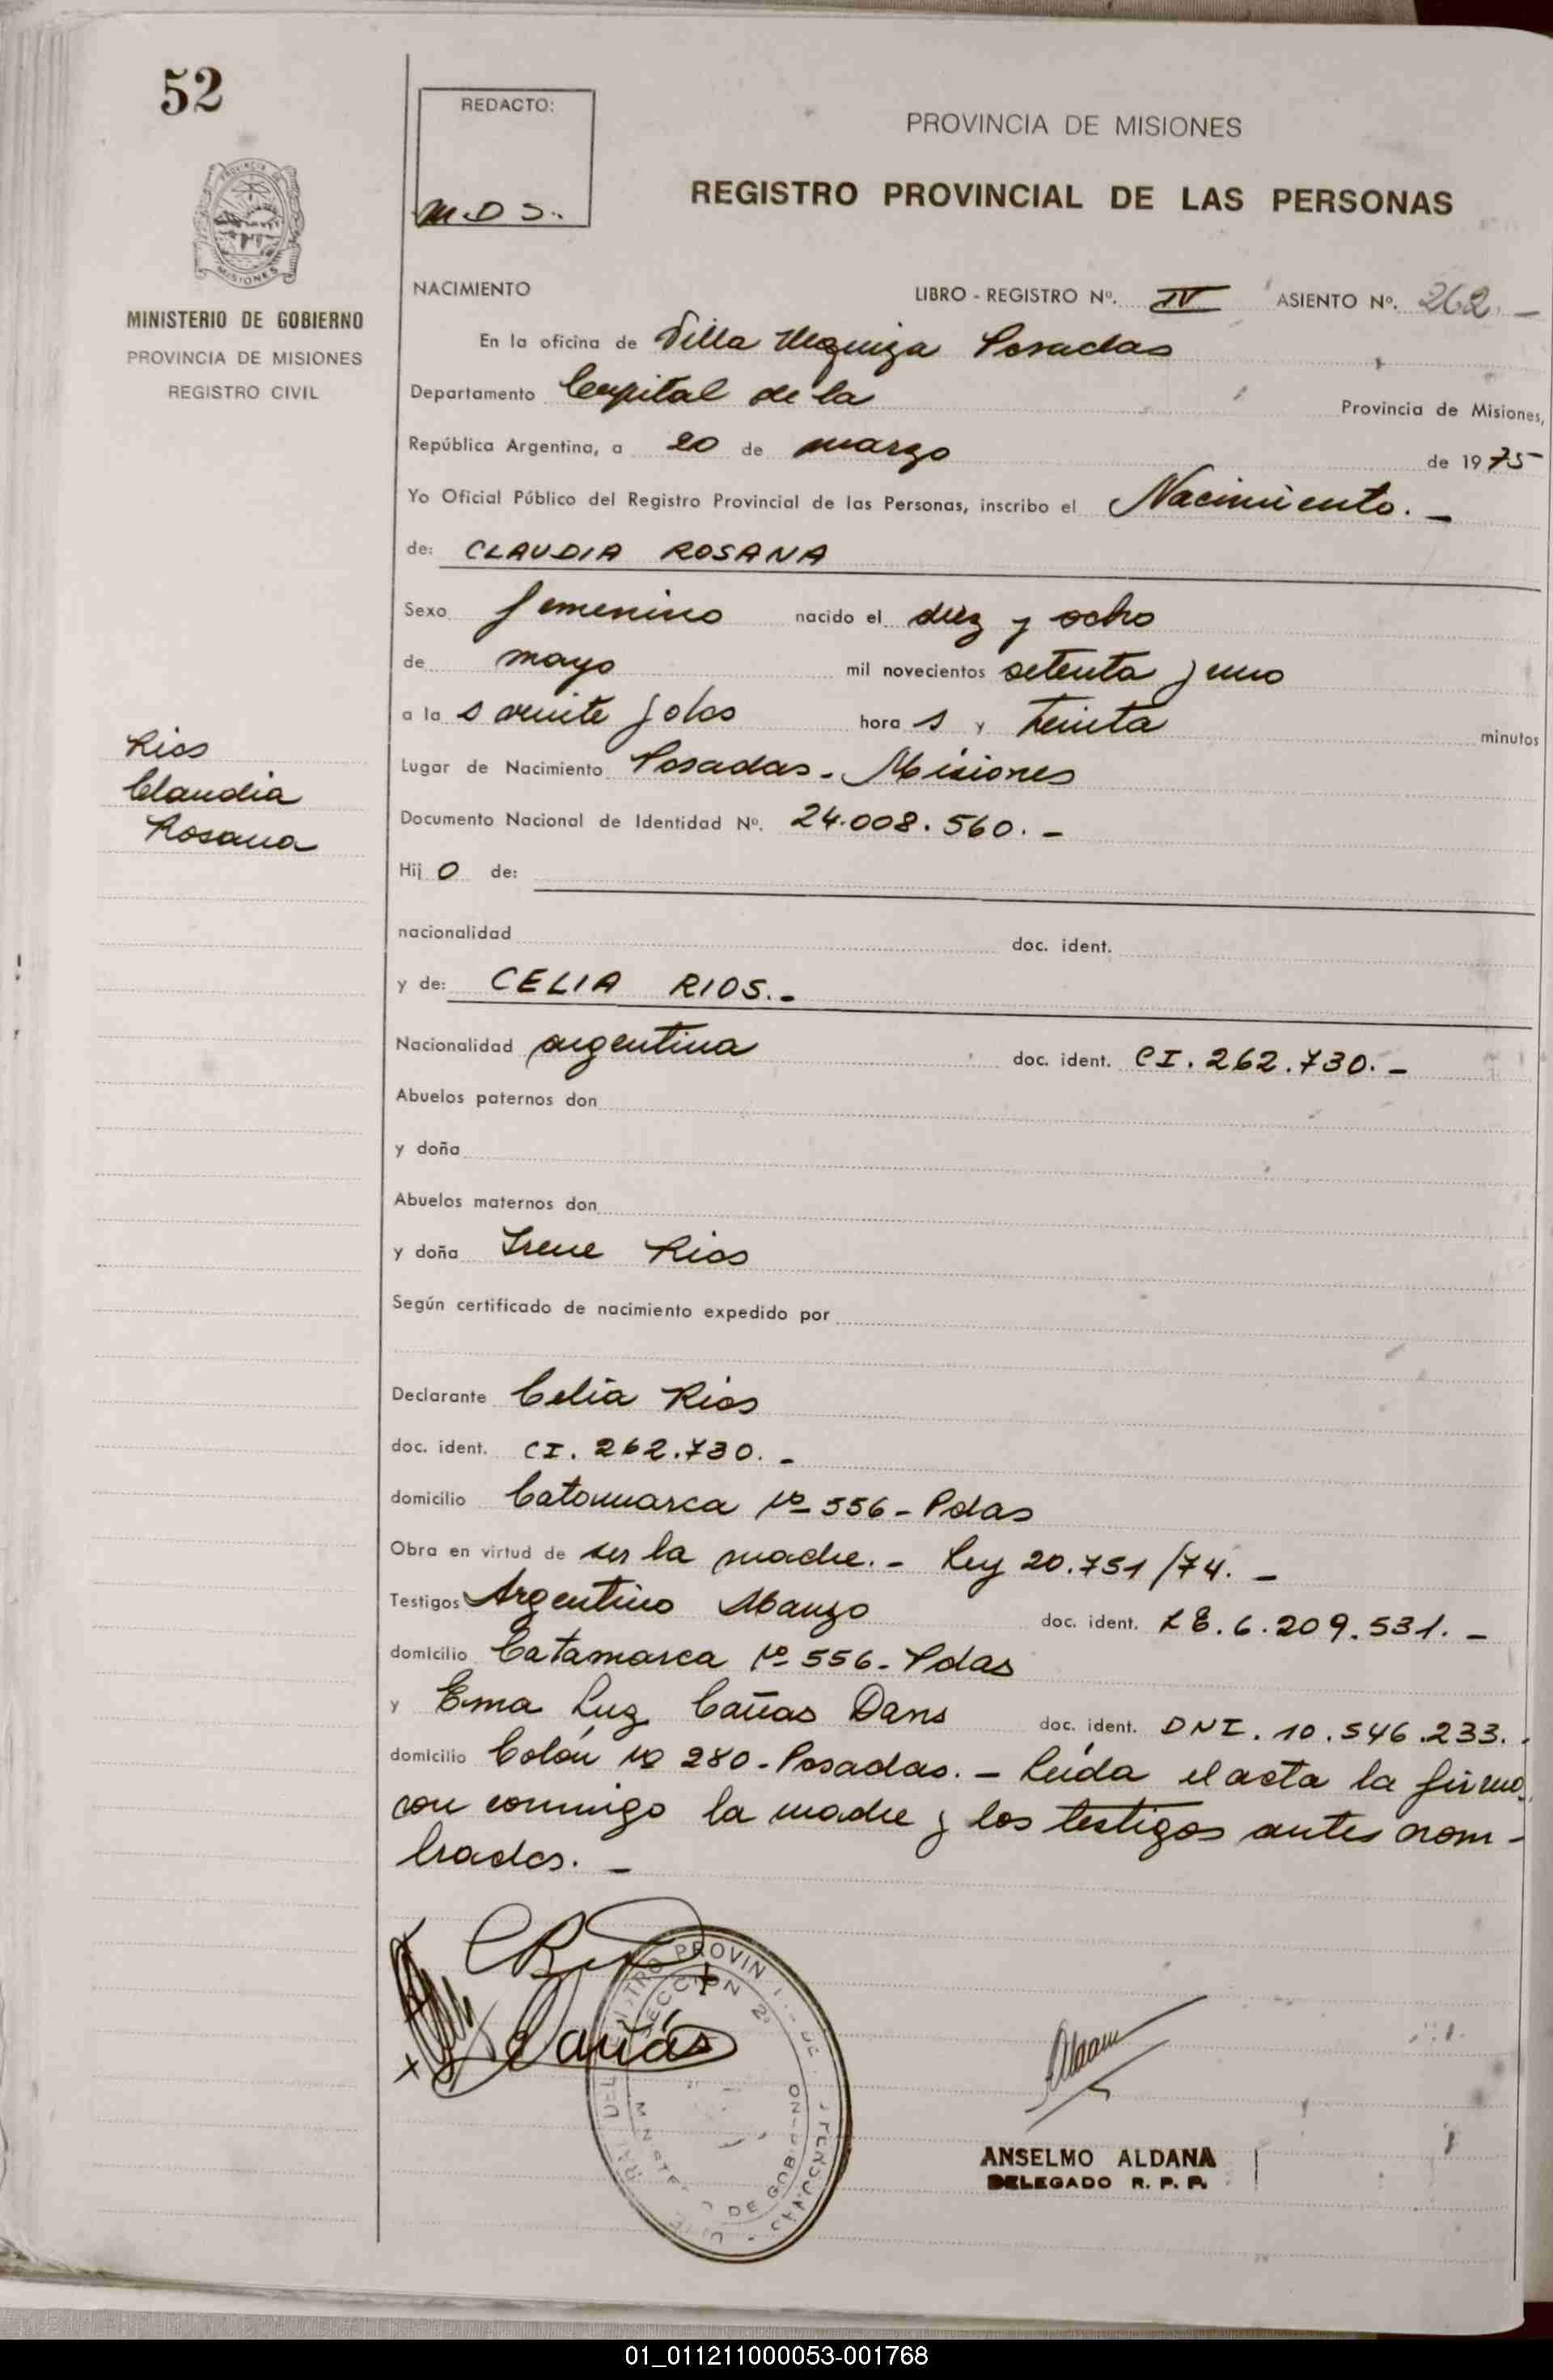 52
REDACTO:
M.D S..
PROVINCIA DE MISIONES
REGISTRO PROVINCIAL DE LAS PERSONAS
MISIONES
MINISTERIO DE GOBIERNO
PROVINCIA DE MISIONES
REGISTRO CIVIL
NACIMIENTO LIBRO - REGISTRO Nº. IV ASIENTO Nº. 262.-
En la oficina de Villa Urquiza Posadas
Departamento Capital de la Provincia de Misiones,
República Argentina, a 20 de marzo de 1975
Yo Oficial Público del Registro Provincial de las Personas, inscribo el Nacimiento.-
de: CLAUDIA ROSANA
Sexo femenino nacido el diez y ocho
de mayo mil novecientos setenta y uno
a la s veinte y dos hora s y treinta minutos
Rios
Claudia
Rosana
Lugar de Nacimiento Posadas - Misiones
Documento Nacional de Identidad Nº. 24.008.560.-
Hij o de:
nacionalidad doc. ident.
y de: CELIA RIOS.-
Nacionalidad argentina doc. ident. CI. 262.730.-
Abuelos paternos don
y doña
Abuelos maternos don
y doña Irene Rios
Según certificado de nacimiento expedido por
Declarante Celia Rios
doc. ident. CI. 262.730.-
domicilio Catamarca Nº 556 - Pdas
Obra en virtud de ser la madre.- Ley 20.751/74.-
Testigos Argentino Manzo doc. ident. LE. 6.209.531.-
domicilio Catamarca Nº 556 - Pdas
y Ema Luz Cañas Dans doc. ident. DNI. 10.546.233.-
domicilio Colón Nº 280 - Posadas.- Leida el acta la firma
con conmigo la madre y los testigos antes nom-
brados.-
Cañas
SECCION 2ª
DE GOBIERNO
ANSELMO ALDANA
DELEGADO R. P. P.
01_011211000053-001768